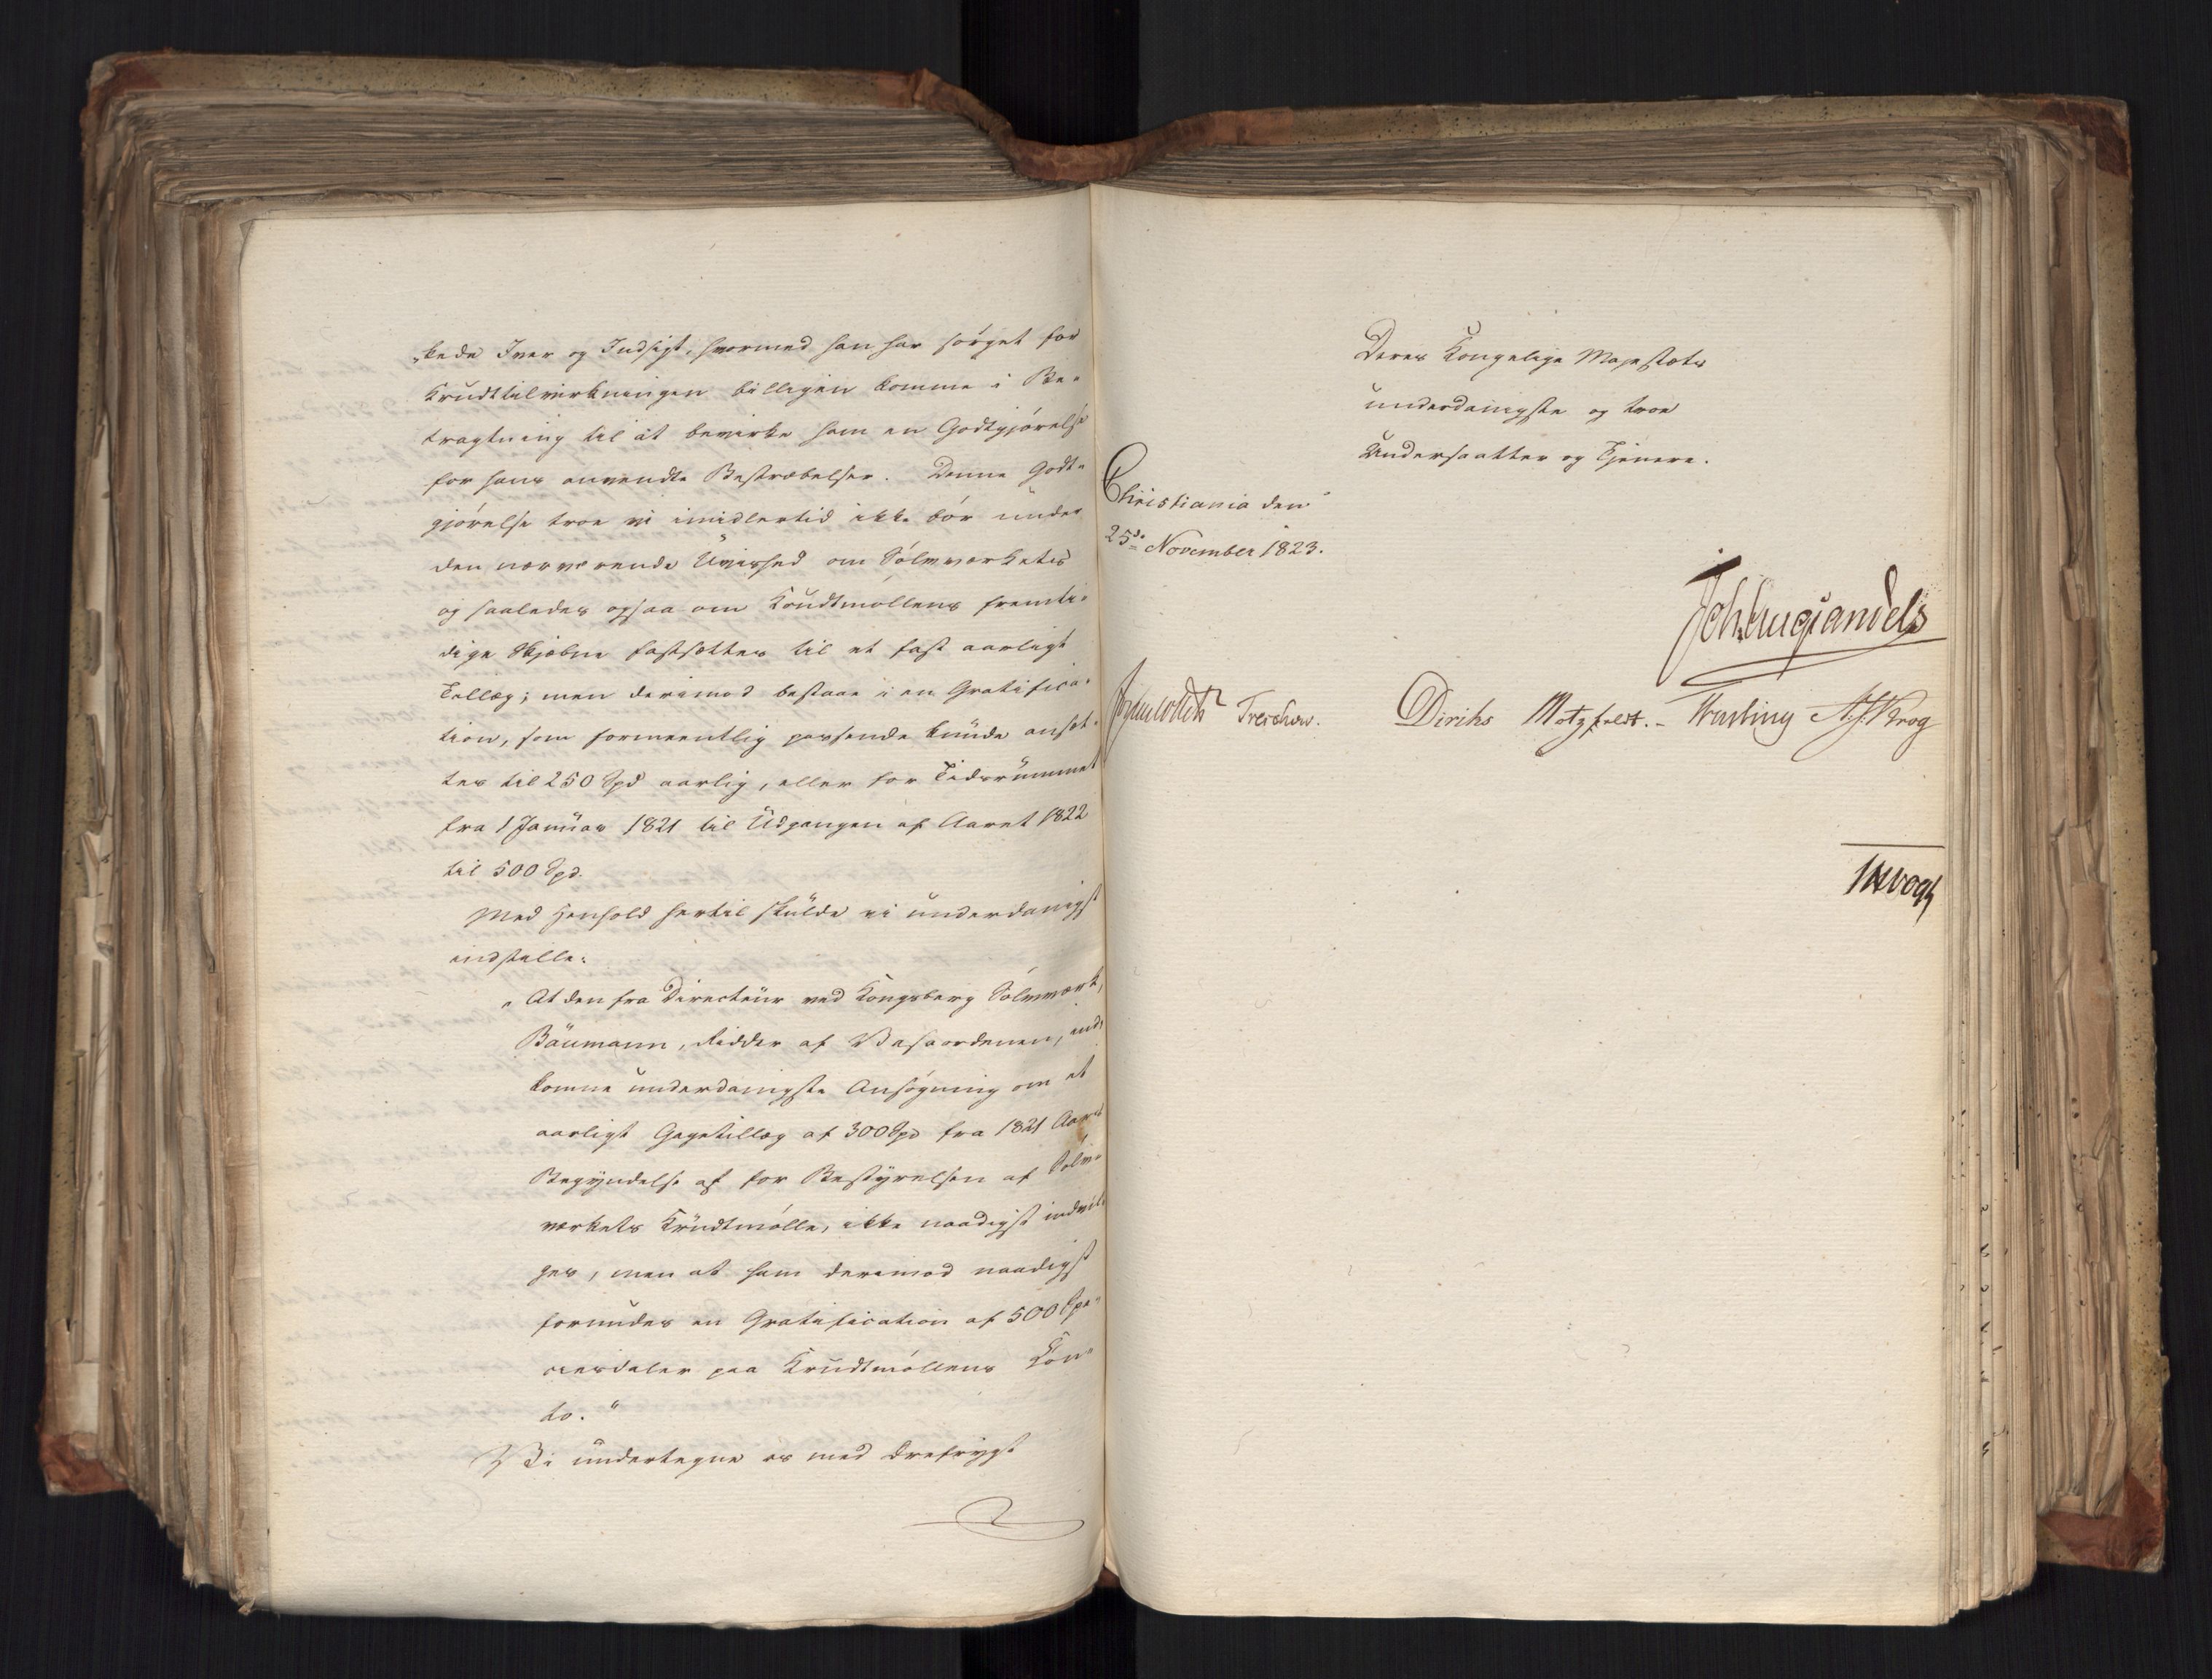 „kede Iver og Indsigt, hvormed han har sörget for
Krudttilvirkningen billigen komme i Be„
tragtning til at bevirke ham en Godtgjörelse
for hans anvendte Bestræbelser. Denne Godt„
gjörelse troe vi imidlertid ikke bör under
den nærværende Uvished om Sölvværkets
og saaledes ogsaa om Krudtmöllens fremti„
dige Skjæbne fastsættes til et fast aarligt
Tillæg; men derimod bestaae i en Gratifica„
tion, som formeentlig passende kunde ansæt„
tes til 250 Spd aarlig, eller for Tidsrummet
fra 1 Januar 1821 til Udgangen af Aaret 1822
til 500 Spd.
Med Henhold hertil skulde vi underdanigst
indstille:
„At den fra Directeur ved Kongsberg Sölvværk,
Baumann, Ridder af Vasaordenen, ind„
komne underdanigste Ansögning om et
aarligt Gagetillæg af 300 Spd fra 1821 Aars
Begyndelse af for Bestyrelsen af Sölv„
værkets Krudtmölle, ikke naadigst indvil„
ges, men at ham derimod naadigst
forundes en Gratification af 500 Spe„
ciesdaler paa Krudtmöllens Con„
to."
Vi undertegne os med Ærefrygt
Deres Kongelige Majestæts
underdanigste og troe
Undersaatter og Tjenere.
Christiania den
25de November 1823.
Joh. Aug. Sandels
Jonas Collett Treschow. Diriks Motzfeldt. Fasting A. S. Krog
J H Vogt